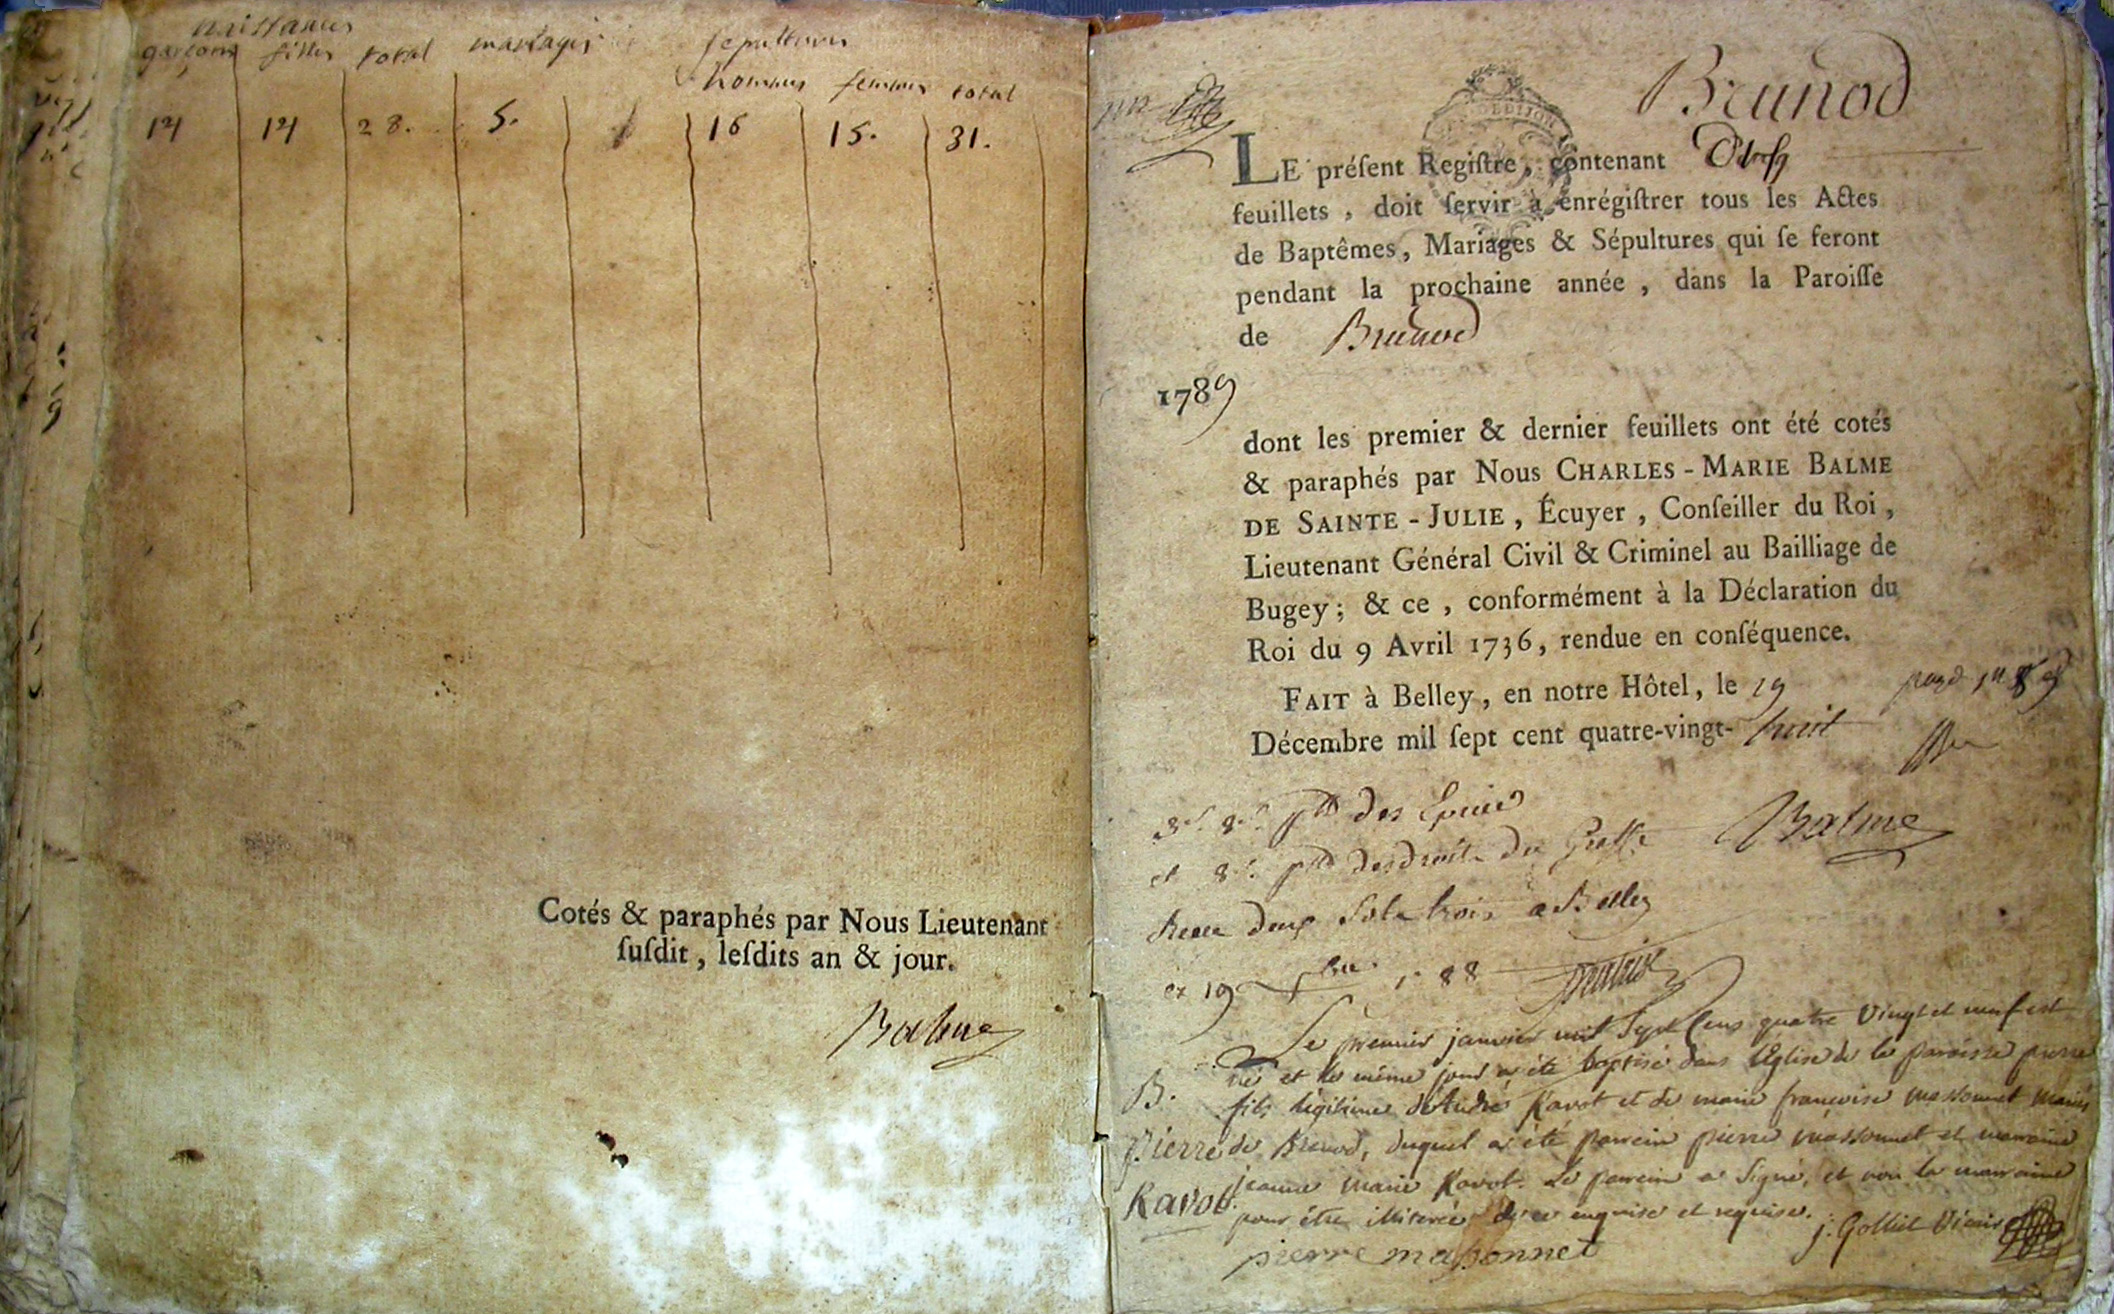 naissances
garçons filles total mariages sepultures
hommes femmes total
14 14 28. 5. 16 15. 31.
Cotés & paraphés par Nous Lieutenant
ſuſdit, leſdits an & jour.
Balme
Brunod
LE préſent Regiſtre, contenant
feuillets, doit ſervir à enrégiſtrer tous les Actes
de Baptêmes, Mariages & Sépultures qui ſe feront
pendant la prochaine année, dans la Paroiſſe
de Brunod
1789
dont les premier & dernier feuillets ont été cotés
& paraphés par Nous CHARLES-MARIE BALME
DE SAINTE-JULIE, Écuyer, Conſeiller du Roi,
Lieutenant Général Civil & Criminel au Bailliage de
Bugey; & ce, conformément à la Déclaration du
Roi du 9 Avril 1736, rendue en conſéquence.
FAIT à Belley, en notre Hôtel, le 19
Décembre mil ſept cent quatre-vingt-huit
des
Balme
et 8 des droits de Greffe
deux sols trois a Belley
19 88
Le premier janvier mil sept cens quatre vingt et neuf est
né et le même jour a été baptisé dans l'Eglise de la paroisse pierre
B. fils légitime de André Ravot et de marie françoise massonnet mariés
Pierre de Brenod, duquel a été parrein pierre massonnet et marraine
Ravot. jeanne marie Ravot. Le parrein a signé, et non la marraine
pour être illiterée de ce enquise et requise. j: Golliet Vicaire
pierre massonnet